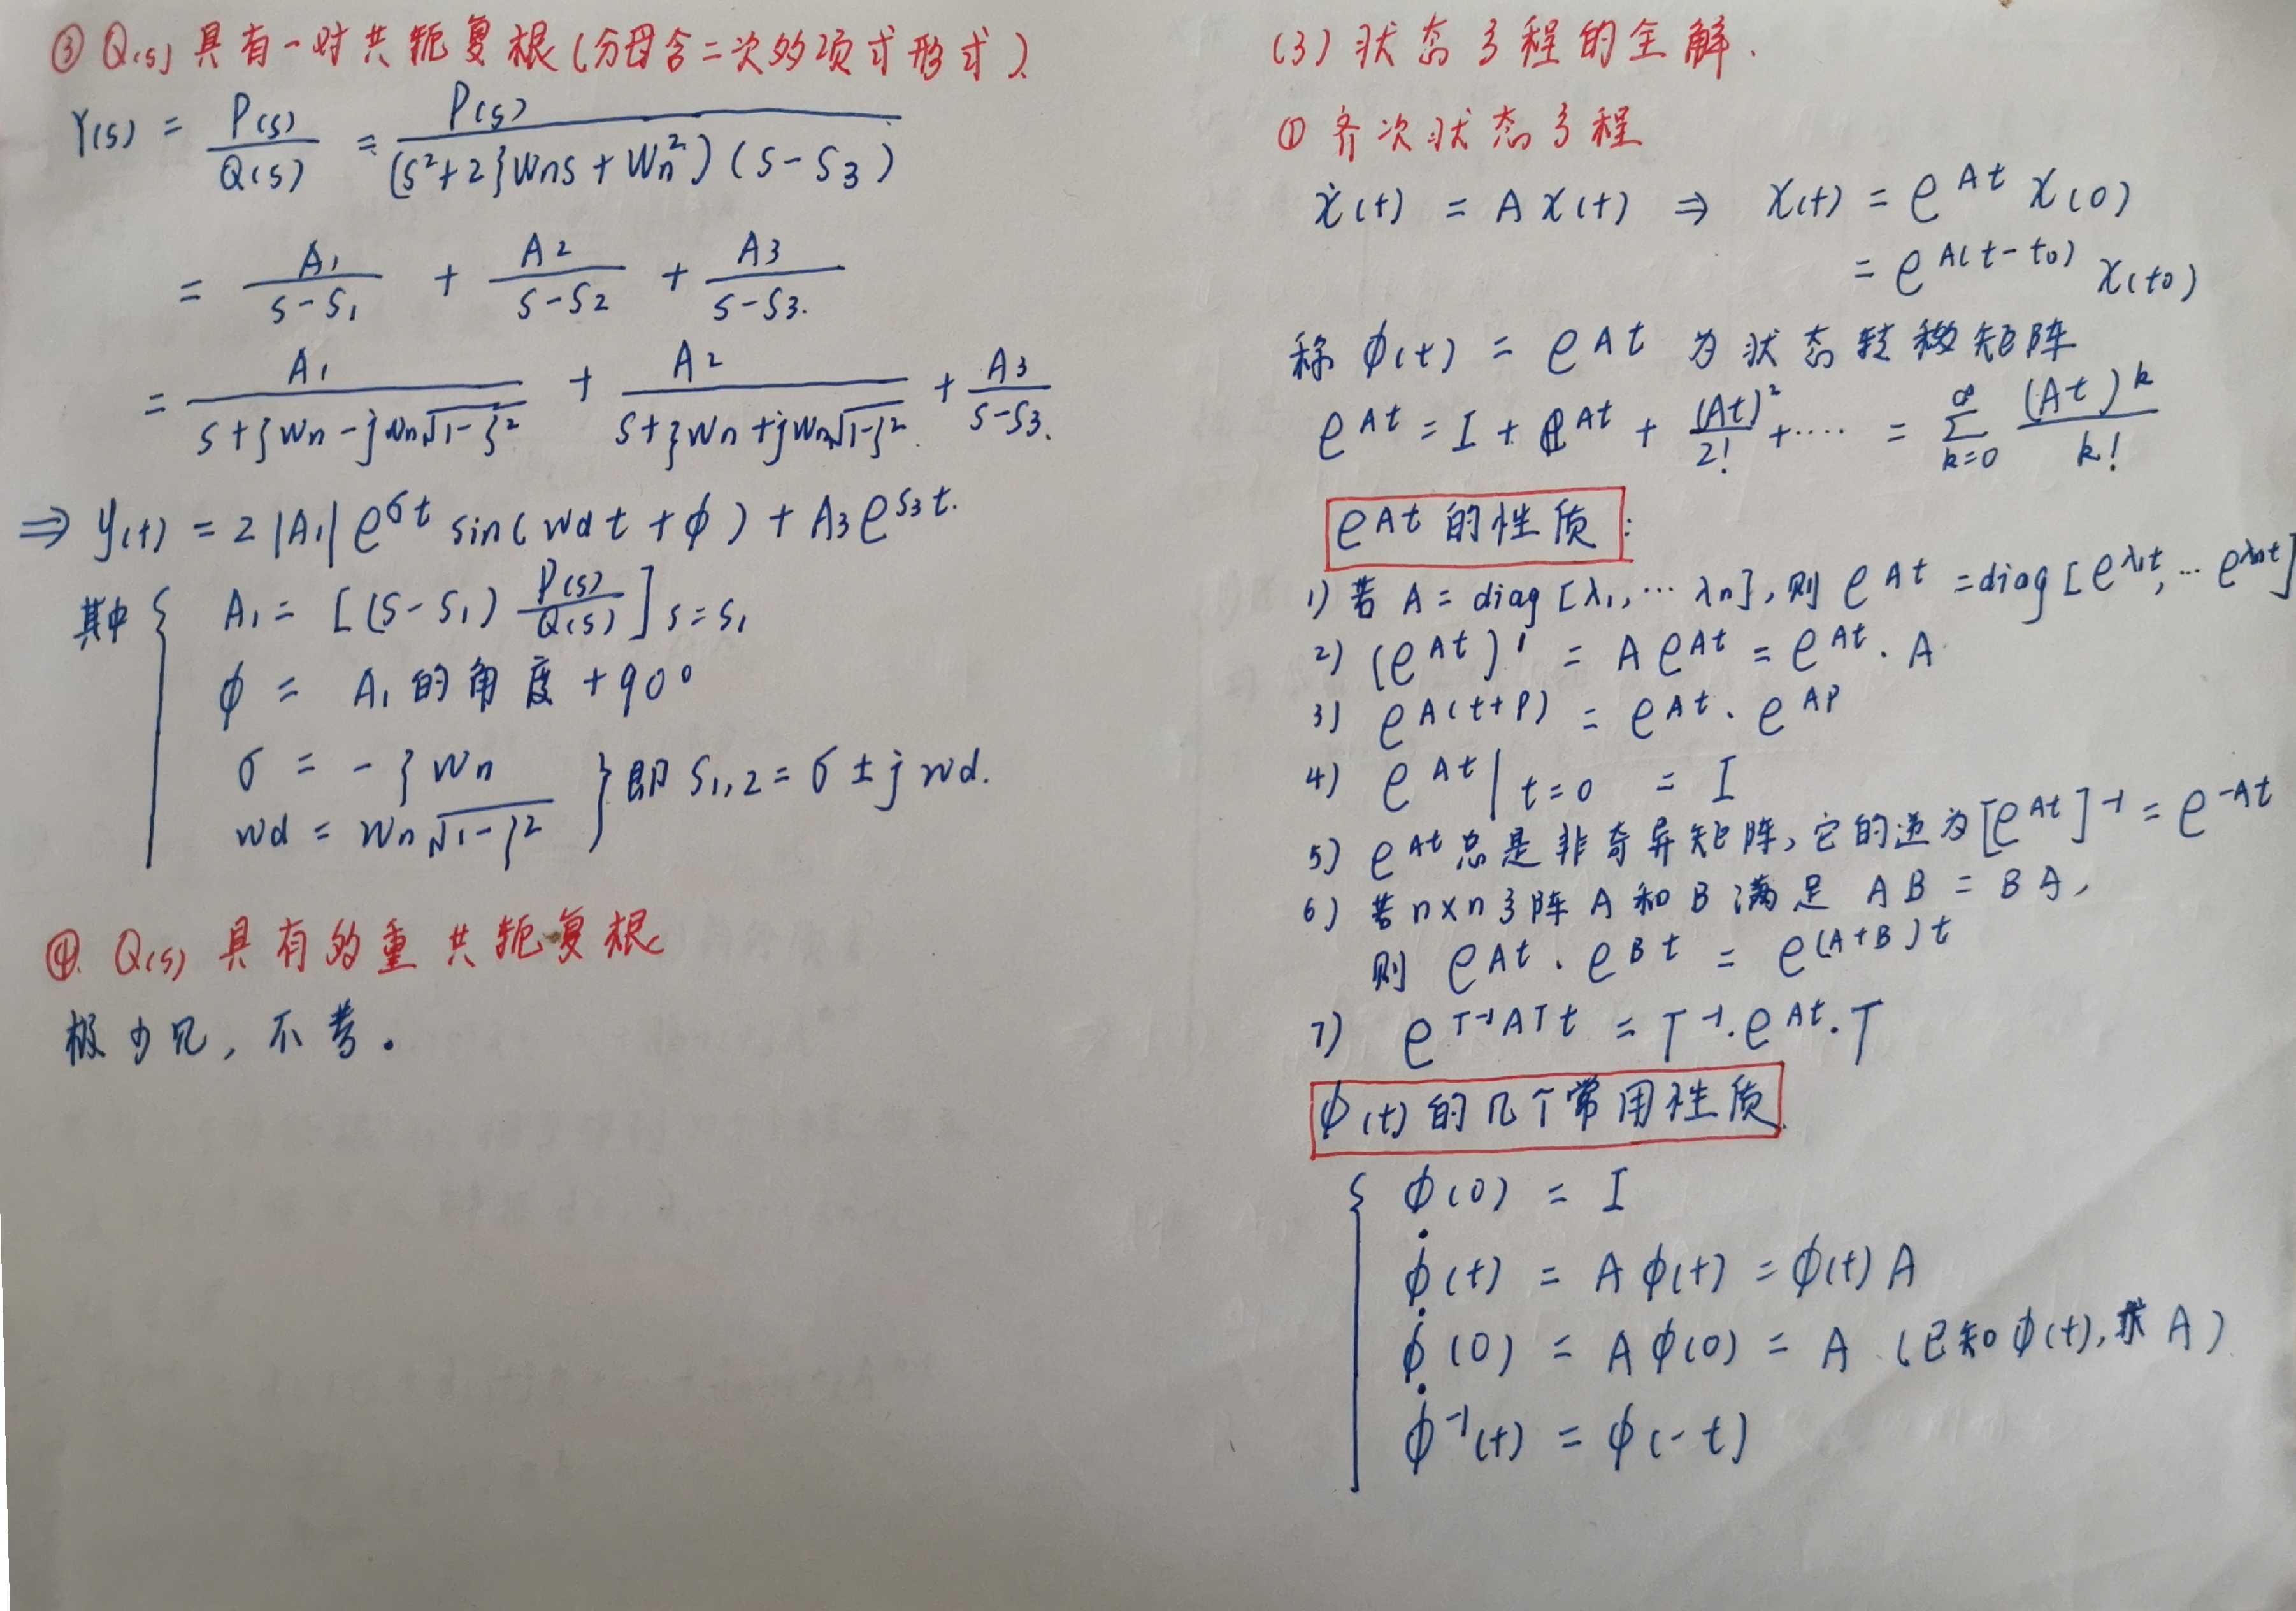 ③ Q(s)具有一对共轭复根(分母含二次多项式形式).
Y(s) = P(s)/Q(s) = P(s)/((s²+2ξWns+Wn²)(s-s3))
= A1/(s-s1) + A2/(s-s2) + A3/(s-s3).
= A1/(s+ξWn-jWn√(1-ξ²)) + A2/(s+ξWn+jWn√(1-ξ²)) + A3/(s-s3).
⇒ y(t) = 2|A1|e^σt sin(Wdt+φ) + A3e^s3t.
其中 { A1 = [(s-s1) P(s)/Q(s)] s=s1
φ = A1的角度+90°
σ = -ξWn
Wd = Wn√(1-ξ²) } 即 S1,2 = σ±jWd.
④. Q(s)具有多重共轭复根
极少见, 不考。
(3) 状态方程的全解.
① 齐次状态方程
ẋ(t) = Ax(t) ⇒ x(t) = e^At x(0)
= e^A(t-t0) x(t0)
称 φ(t) = e^At 为状态转移矩阵
e^At = I + At + (At)²/2! + ···· = ∑_{k=0}^{∞} (At)^k/k!
e^At 的性质:
1) 若 A = diag[λ1,… λn], 则 e^At = diag[e^λ1t, … e^λnt]
2) (e^At)' = Ae^At = e^At · A
3) e^A(t+p) = e^At · e^Ap
4) e^At | t=0 = I
5) e^At 总是非奇异矩阵, 它的逆为[e^At]^-1 = e^-At
6) 若n×n方阵A和B满足 AB = BA,
则 e^At · e^Bt = e^(A+B)t
7) e^T^-1ATt = T^-1 · e^At · T
φ(t)的几个常用性质
{ φ(0) = I
φ̇(t) = Aφ(t) = φ(t)A
φ̇(0) = Aφ(0) = A (已知φ(t), 求A)
φ̇^-1(t) = φ(-t)